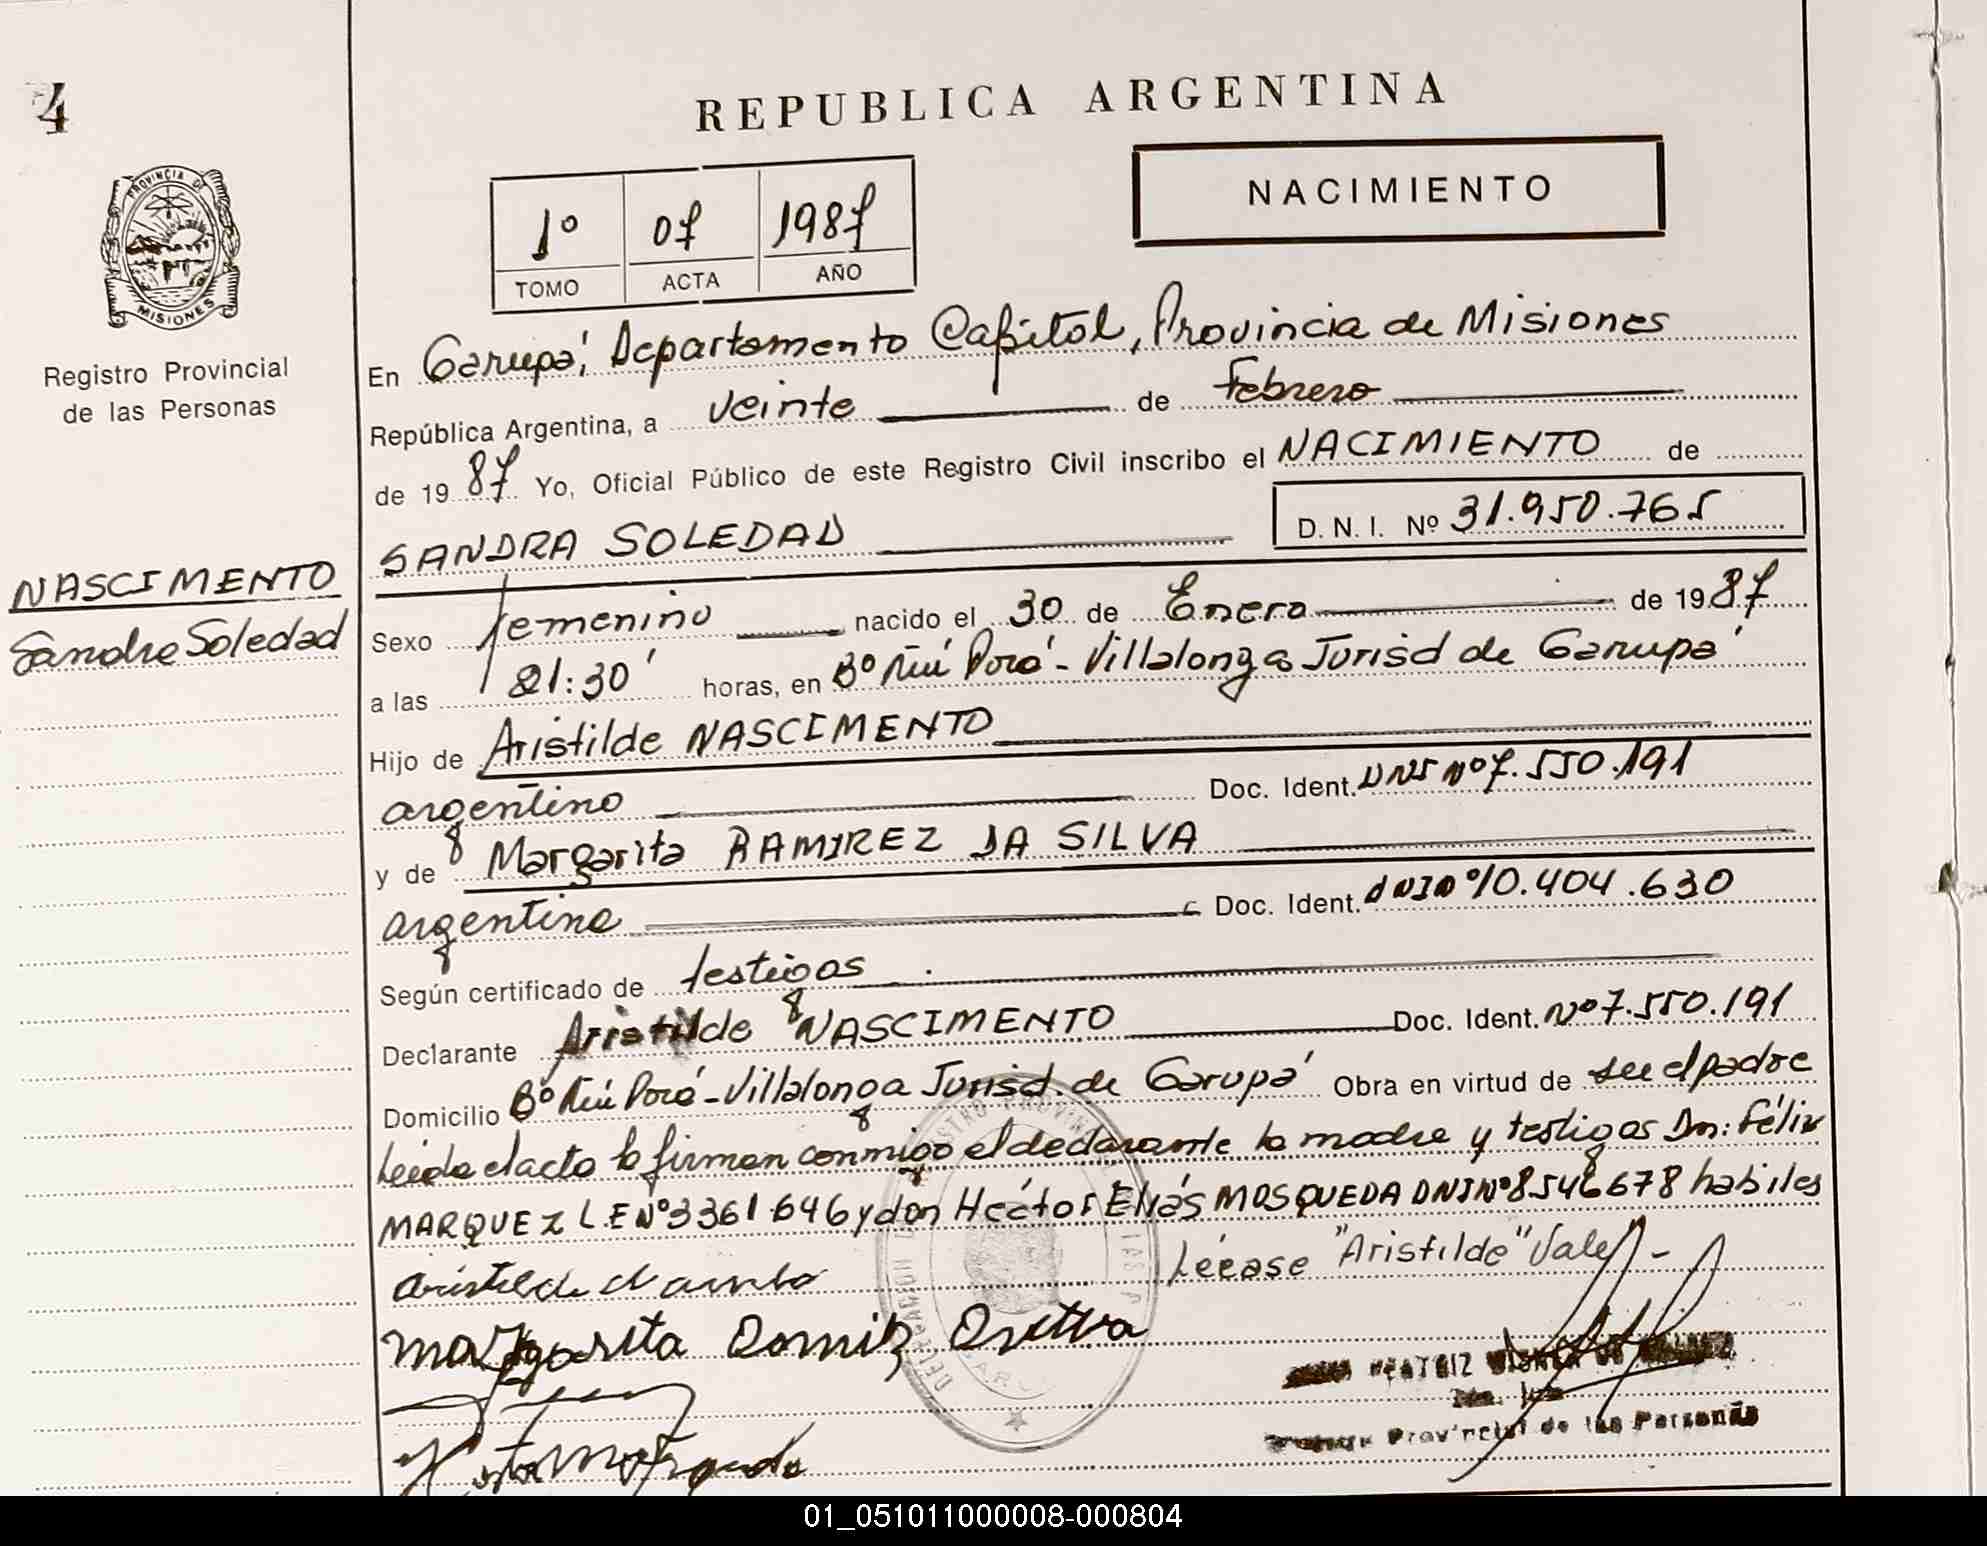 4
REPUBLICA ARGENTINA
NACIMIENTO
1º 07 1987
TOMO ACTA AÑO
PROVINCIA DE
MISIONES
Registro Provincial
de las Personas
NASCIMENTO
Sandra Soledad
En Garupá, Departamento Capital, Provincia de Misiones
República Argentina, a veinte de Febrero
de 1987 Yo, Oficial Público de este Registro Civil inscribo el NACIMIENTO de
SANDRA SOLEDAD D. N. I. Nº 31.950.765
Sexo femenino nacido el 30 de Enero de 1987
a las 21:30' horas, en Bº Ñú Porá - Villalonga Jurisd de Garupá
Hijo de Aristilde NASCIMENTO
argentino Doc. Ident. DNI Nº 7.550.191
y de Margarita RAMIREZ DA SILVA
argentina Doc. Ident. DNI Nº 10.404.630
Según certificado de testigos
Declarante Aristilde NASCIMENTO Doc. Ident. Nº 7.550.191
Domicilio Bº Ñú Porá - Villalonga Jurisd. de Garupá Obra en virtud de ser el padre
Leída el acta la firman conmigo el declarante la madre y testigos Dn: Félix
MARQUEZ L.E Nº 3361646 y don Héctor Elías MOSQUEDA DNI Nº 8546678 habiles
Léease "Aristilde" Vale -
Margarita
BEATRIZ
Provincial de las Personas
01_051011000008-000804